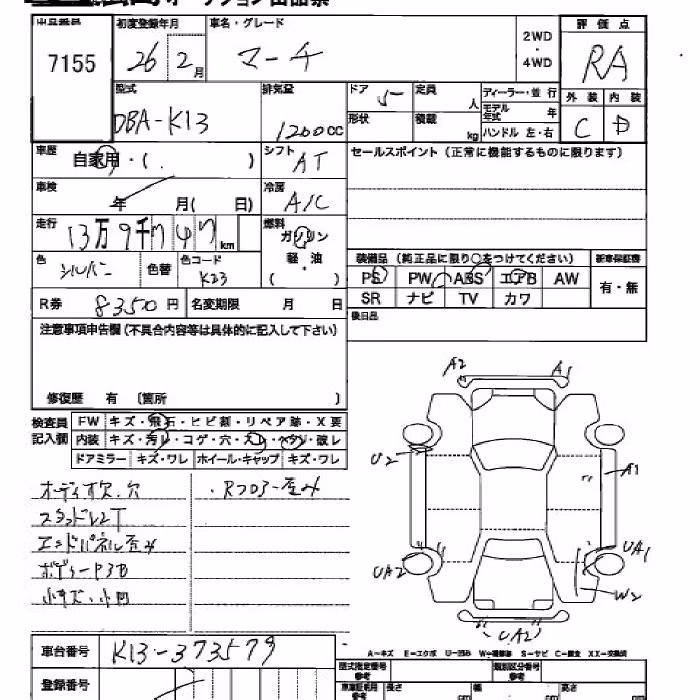 オークション出品票
出品番号 初度登録年月 車名・グレード 2WD・4WD 評価点
7155 26 2月 マーチ RA
型式 排気量 ドア 定員 ディーラー・並行 外装 内装
DBA-K13 1200cc 5 人 モデル年式 年 C D
形状 積載 kg ハンドル 左・右
車歴 自家用・( ) シフト AT セールスポイント(正常に機能するものに限ります)
車検 年 月( 日) 冷房 A/C
走行 13万9千 km 燃料 ガソリン
色 シルバー 色替 色コード K23 軽・油 ( )
装備品(純正品に限り○をつけてください) 新車保証書
PS PW ABS エアB AW 有・無
SR ナビ TV カワ
R券 8350円 名変期限 月 日
後日品
注意事項申告欄(不具合内容等は具体的に記入して下さい)
修復歴 有 〔箇所 〕
検査員記入欄 FW キズ・飛石・ヒビ割・リペア跡・X要
内装 キズ・汚レ・コゲ・穴・スレ・ヘタリ・破レ
ドアミラー キズ・ワレ ホイール・キャップ キズ・ワレ
オーディオ欠.穴 ・Rフロアー歪み
エンドパネル歪み
ボディーPタB
小キズ・小凹
A2 A1
U2 A1
UA2 UA1
W2
UA2
A=キズ E=エクボ U=凹み W=補修跡 S=サビ C=腐食 XX=交換済
車台番号 K13-373579
登録番号
型式指定番号 参考 類別区分番号 参考
長さ cm 幅 cm 高さ cm